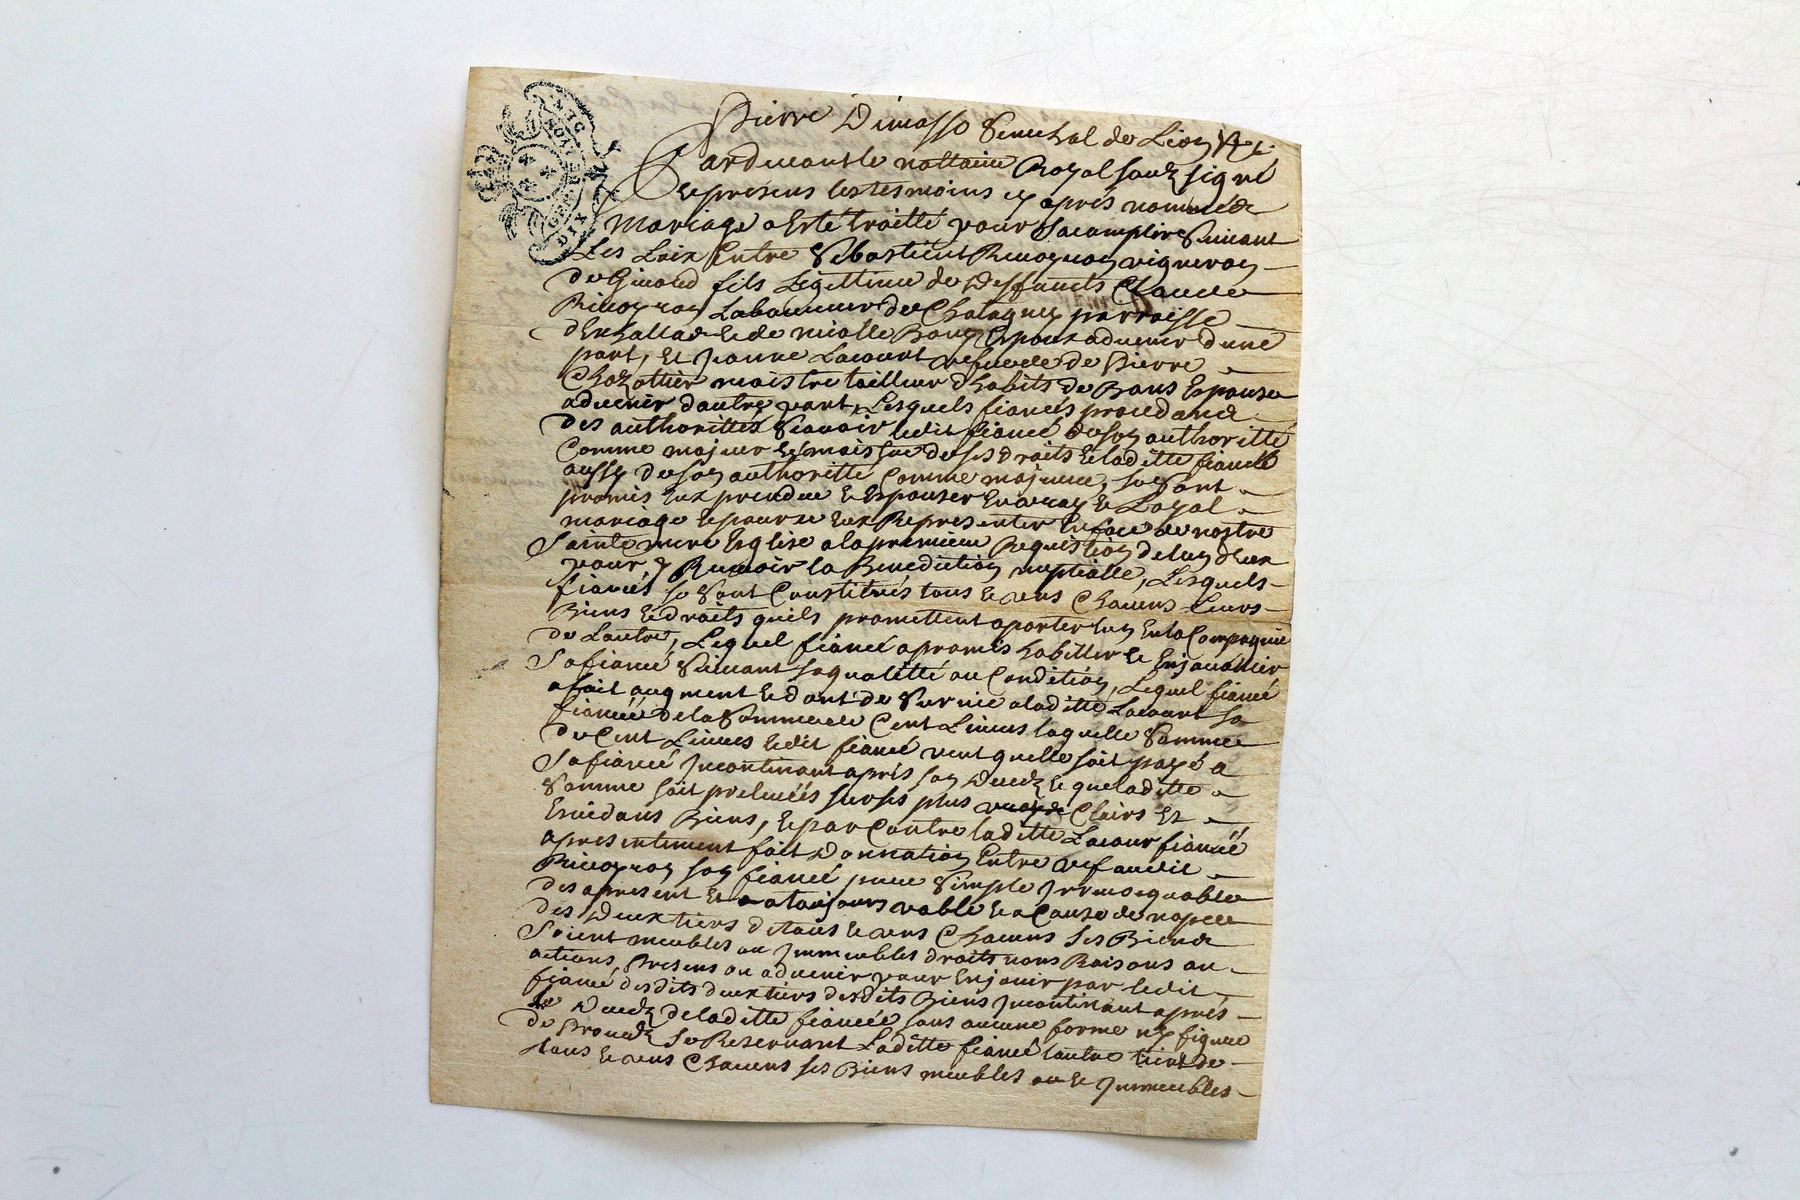 Pierre Dimasso Senechal de Lion &c
Pardevant le nottaire Royal soubz signé
et presens les tesmoins cy après nommés
mariage a esté traitté pour sacomplir suivant
Les Loix Entre Sebastient vigneron
de fils Legittime de deffuncts Claude
Laboureur de parroisse
et de Espoux advenir dune
part, Et Jeanne Lacourt de Pierre
maistre tailleur dhabits de Espouse
advenir dautre part, Lesquels fiancés procedant
des authorittés Scavoir ledit fiancé de son authoritté
Comme majeur et maistre de ses droits et laditte fiancée
aussy de son authoritté Comme majeure, se sont
promis Eux prendre et Espouser En vray et Loyal
mariage et pour ce Eux Representer En face de nostre
Sainte mere Esglise a la premiere Requisition de lun deux
pour y Recevoir la Benediction nuptialle, Lesquels
fiancés se sont Constitués tous et uns Chacuns Leurs
Biens et droits quils promettent aporter lun En la Compagnie
de Lautre, Lequel fiancé a promis habiller et Enjoualler
Sa fiancé Suivant sa qualitté ou Condition, Lequel fiancé
a fait augment et dont de Survie a laditte Lacourt sa
fiancée de la Somme de Cent Livres laquelle Somme
de Cent Livres ledit fiancé veut quelle soit payé a
Sa fiancé Incontinant après son Decedz et que laditte
Somme soit prelevéés sur ses plus Clairs Et
Evidans Biens, et par Contre laditte Lacour fiancéé
a presentement fait Donnation Entre vifs audit
son fiancé pure Simple Irrevoquable
des apresent Et a toujours vable et a Cause de nopces
des Deux tiers de tous et uns Chacuns ses Biens
Soient meubles ou Immeubles droits noms Raisons ou
actions Presens ou advenir pour En jouir par ledit
fiancé desdits deux tiers desdits Biens Incontinant après
Le Decedz de laditte fiancée sans aucune forme ny figure
de Procedz Se Reservant Laditte fiancé lautre tiers de
tous et uns Chacuns ses Biens meubles ou et Immeubles